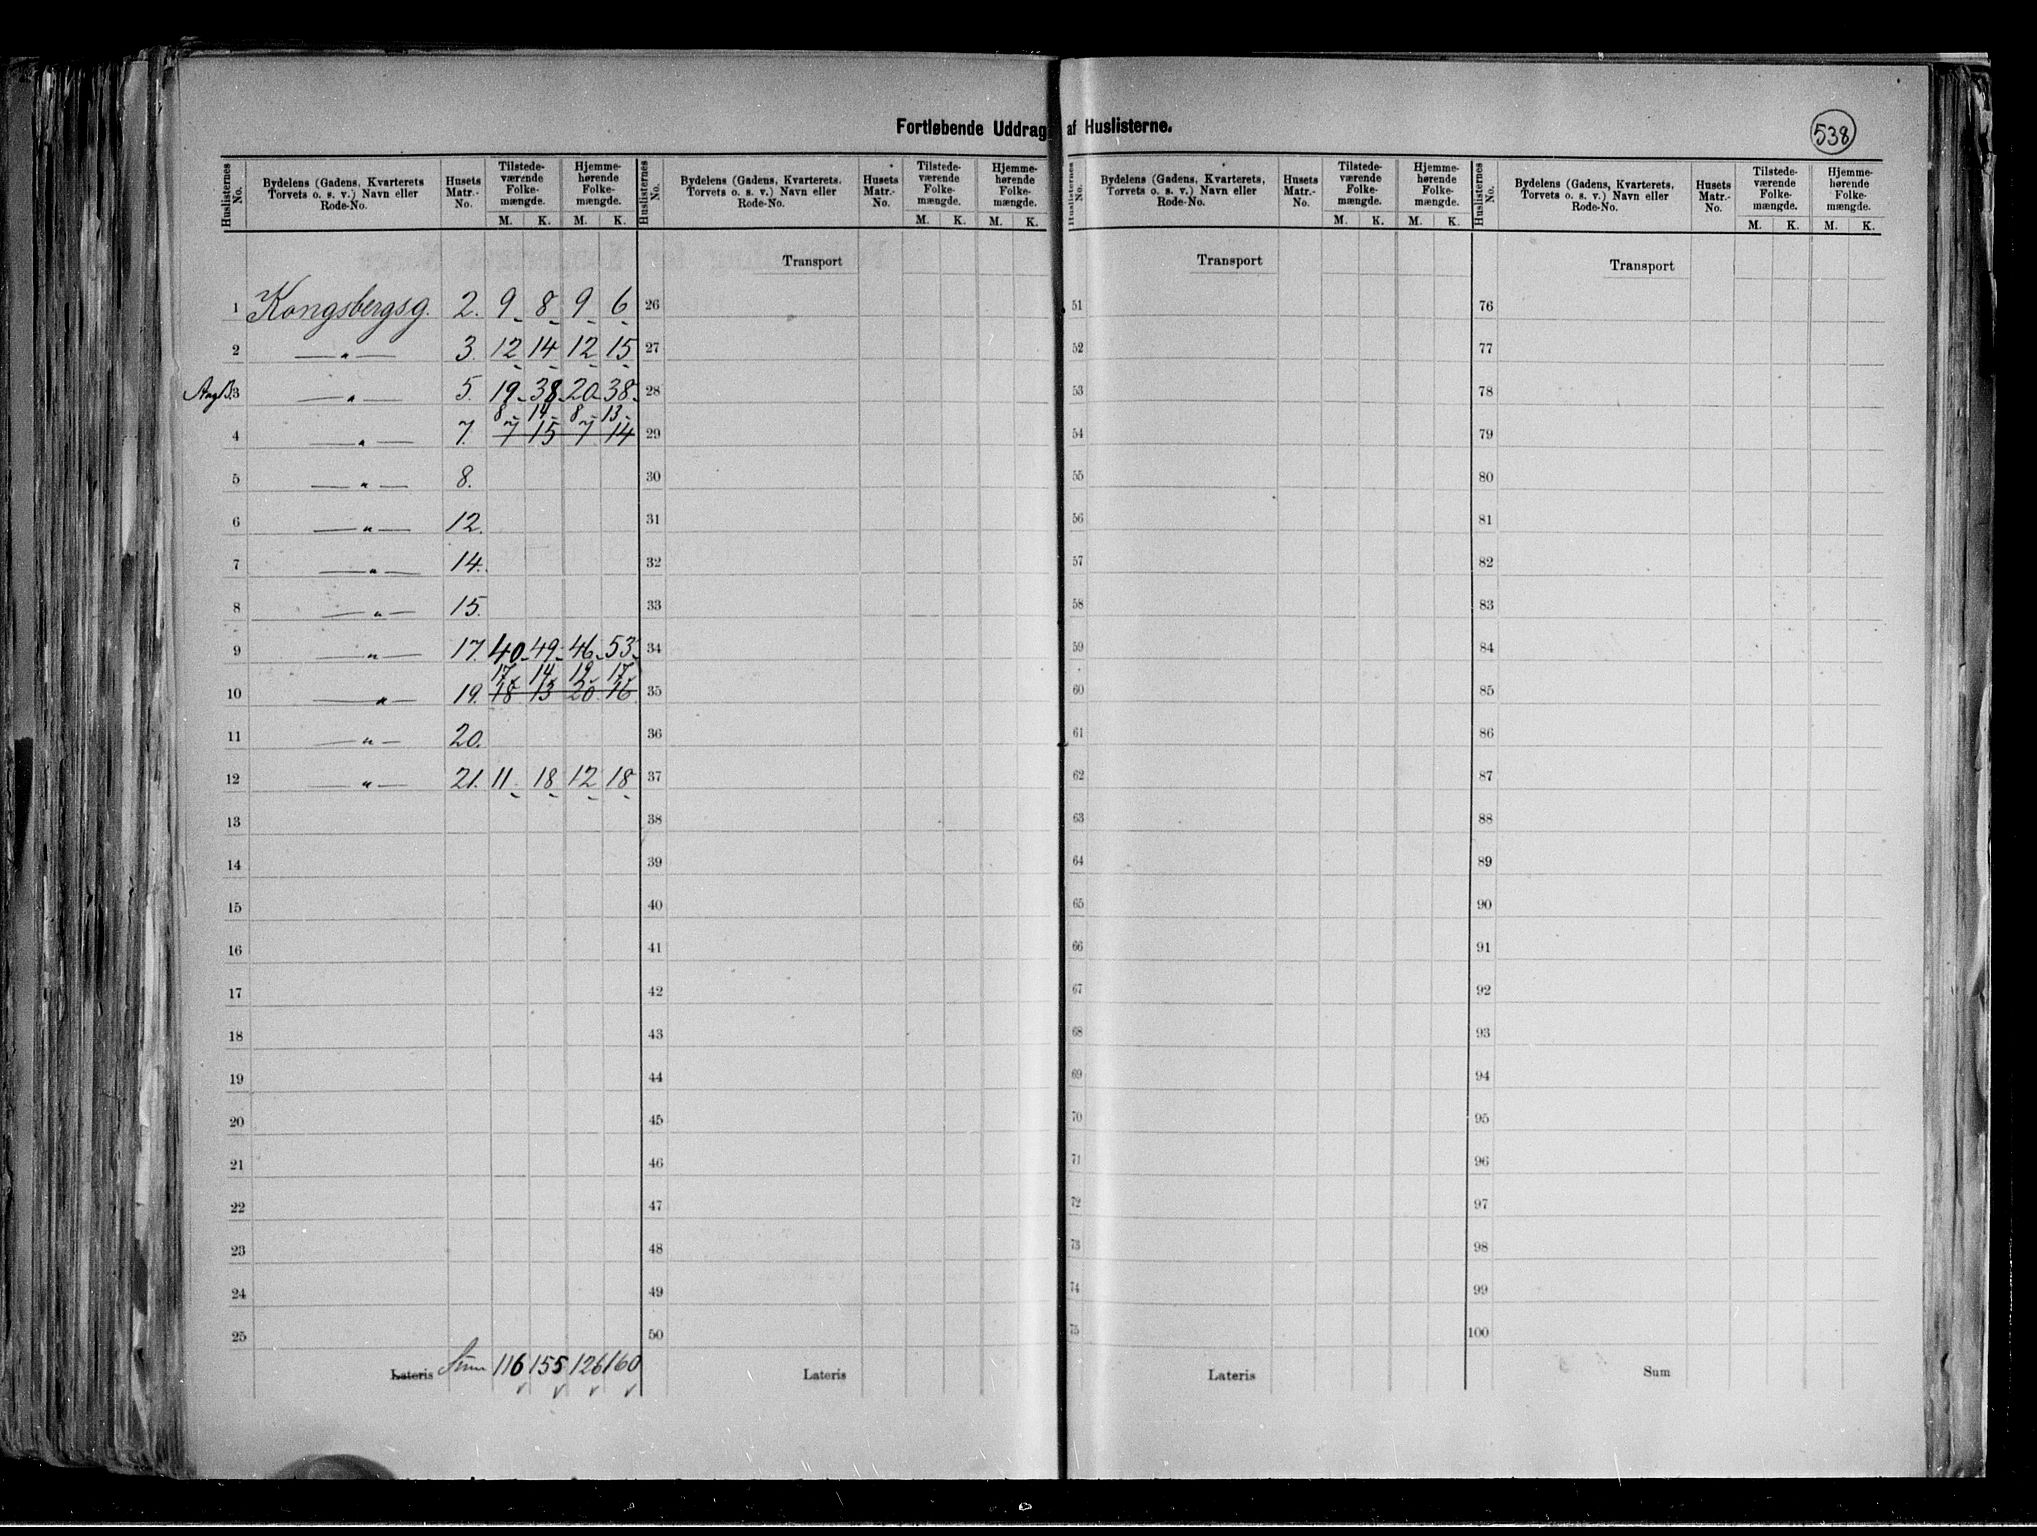 Fortløbende Uddrag af Huslisterne.
538
Huslisternes No. | Bydelens (Gadens, Kvarterets, Torvets o. s. v.) Navn eller Rode-No. | Husets Matr.-No. | Tilstedeværende Folkemængde. M. K. | Hjemmehørende Folkemængde. M. K.
Huslisternes No. | Bydelens (Gadens, Kvarterets, Torvets o. s. v.) Navn eller Rode-No. | Husets Matr.-No. | Tilstedeværende Folkemængde. M. K. | Hjemmehørende Folkemængde. M. K.
Huslisternes No. | Bydelens (Gadens, Kvarterets, Torvets o. s. v.) Navn eller Rode-No. | Husets Matr.-No. | Tilstedeværende Folkemængde. M. K. | Hjemmehørende Folkemængde. M. K.
Huslisternes No. | Bydelens (Gadens, Kvarterets, Torvets o. s. v.) Navn eller Rode-No. | Husets Matr.-No. | Tilstedeværende Folkemængde. M. K. | Hjemmehørende Folkemængde. M. K.
Transport Transport Transport
1 Kongsbergsg. 2. 9 8 9 6 26 51 76
2 — " — 3. 12 14 12 15 27 52 77
3 — " — 5. 19 38 20 38 28 53 78
8 14 8 13
4 — " — 7. 7 15 7 14 29 54 79
5 — " — 8. 30 55 80
6 — " — 12. 31 56 81
7 — " — 14. 32 57 82
8 — " — 15. 33 58 83
9 — " — 17. 40 49 46 53 34 59 84
17 14 19 17
10 — " — 19. 18 13 20 16 35 60 85
11 — " — 20. 36 61 86
12 — " — 21. 11 18 12 18 37 62 87
13 38 63 88
14 39 64 89
15 40 65 90
16 41 66 91
17 42 67 92
18 43 68 93
19 44 69 94
20 45 70 95
21 46 71 96
22 47 72 97
23 48 73 98
24 49 74 99
25 50 75 100
Lateris Sum 116 155 126 160 Lateris Lateris Sum